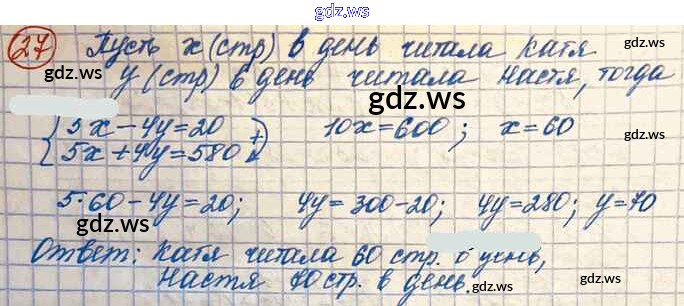 gdz.ws
27 Пусть x (стр) в день читала Катя
gdz.ws gdz.ws
y (стр) в день читала Настя, тогда
gdz.ws gdz.ws
{ 5x - 4y = 20
5x + 4y = 580 } + 10x = 600; x = 60
gdz.ws
gdz.ws
5·60 - 4y = 20; 4y = 300 - 20; 4y = 280; y = 70
gdz.ws gdz.ws
Ответ: Катя читала 60 стр. в день,
Настя 70 стр. в день.
gdz.ws gdz.ws
gdz.ws